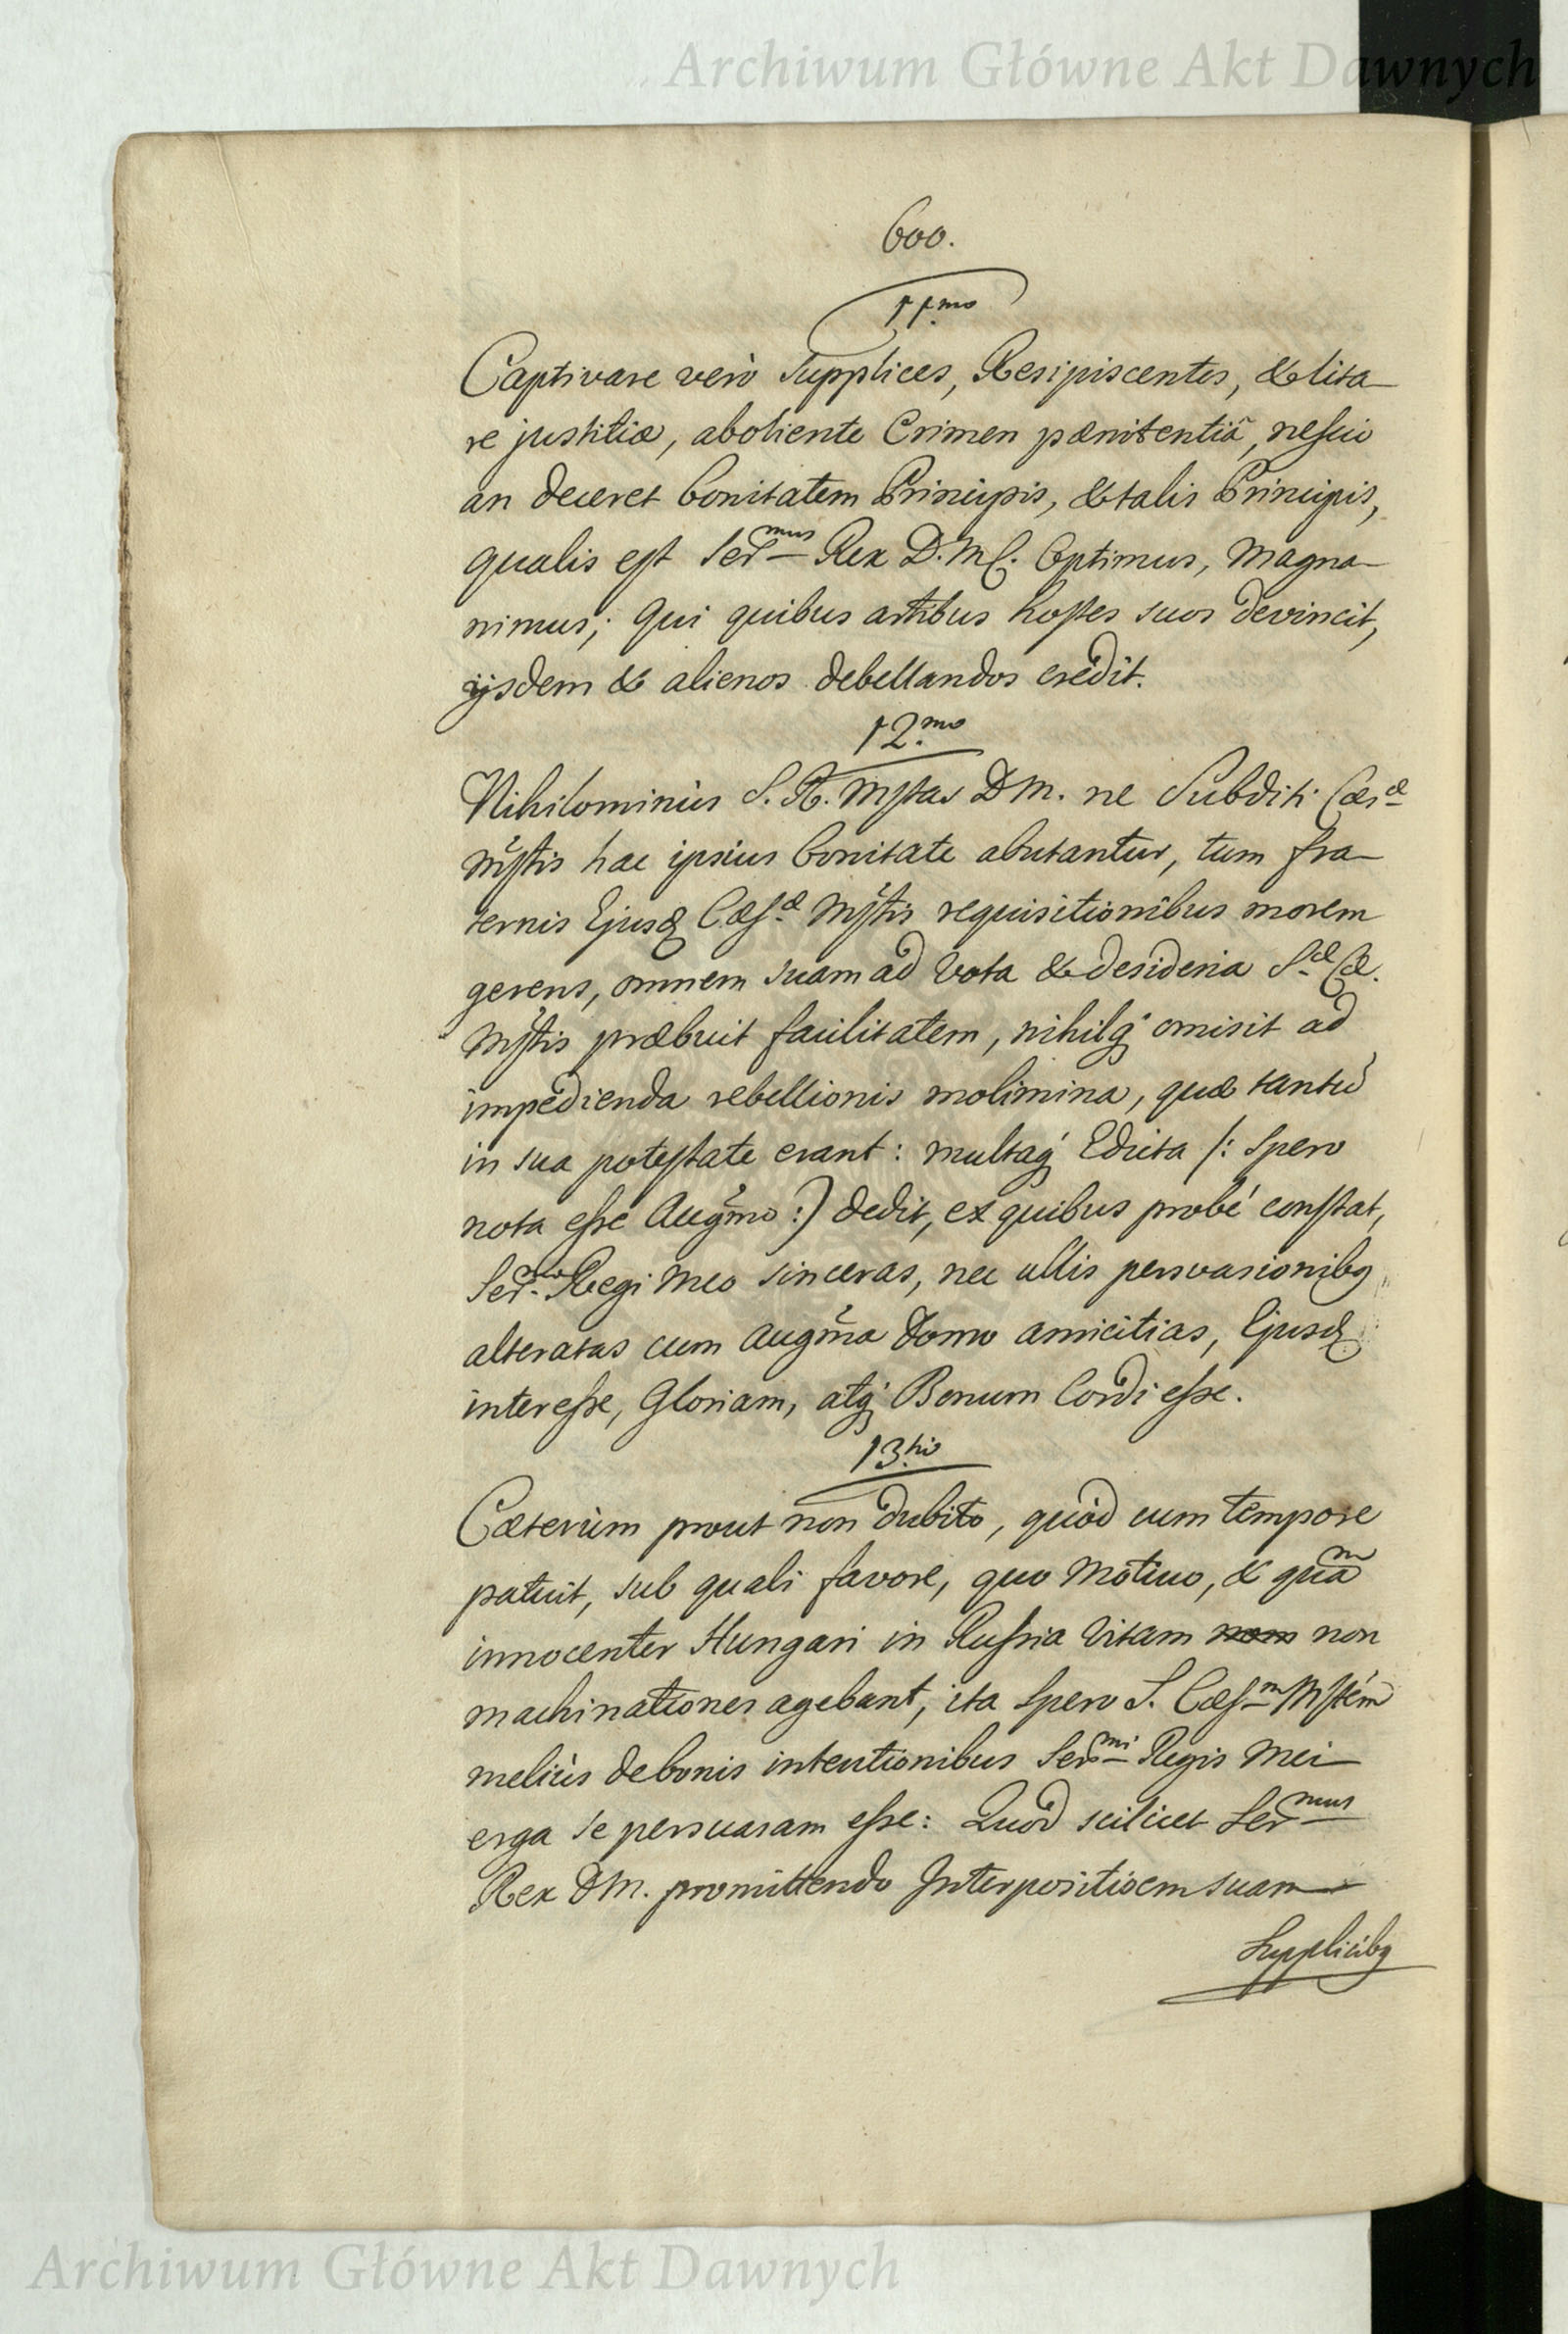 Archiwum Główne Akt Dawnych
600.
11.mo
Captivare verò supplices, Resipiscentes, & lita-
re justitiæ, aboliente Crimen pænitentiâ, nescio
an deceret bonitatem Principis, & talis Principis,
qualis est Ser.mus Rex D. M. Optimus, Magna-
nimus; Qui quibus artibus hostes suos devincit,
ijsdem & alienos debellandos credit.
12.mo
Nihilominùs S. R. Mstas D M. ne Subditi Cæs.æ
Mstis hac ipsius bonitate abutantur, tum fra-
ternis Ejusq Cæs.æ Mstis requisitionibus morem
gerens, omnem suam ad vota & desideria S.æ Cæ.
Mstis præbuit facilitatem, nihilq omisit ad
impedienda rebellionis molimina, quæ tantũ
in sua potestate erant: multaq Edicta /: spero
nota esse Augmo :) dedit, ex quibus probé constat,
Ser.mo Regi Meo sinceras, nec ullis persvasionibq
alteratas cum Augma Domo amicitias, Ejusq
interesse, Gloriam, atq Bonum Cordi esse.
13.tio
Cæterùm prout non dubito, quòd cum tempore
patuit, sub quali favore, quo Motivo, & quam
innocenter Hungari in Russia vitam nom non
machinationes agebant, ita spero S. Cæs.m Mstem
meliùs de bonis intentionibus Ser.mi Regis Mei
erga se persuasam esse: Quòd scilicet Ser.mus
Rex D M. promittendo Interpositioem suam
Supplicibq
Archiwum Główne Akt Dawnych